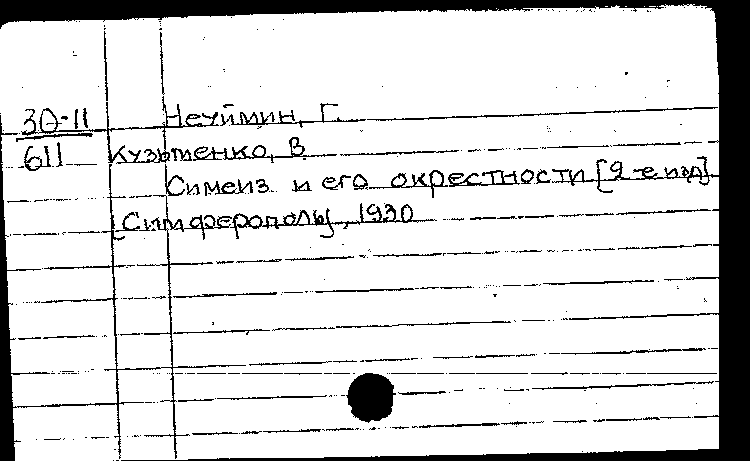 30-11 Неуймин, Г.
611 Кузьменко, В.
Симеиз и его окрестности [2-е изд]
[Симферополь], 1930